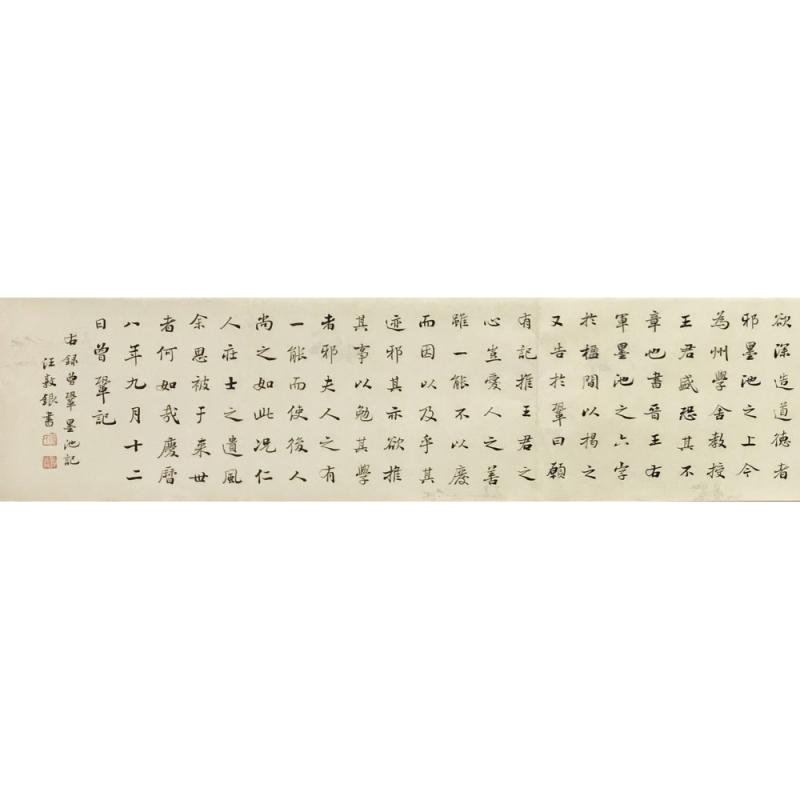 欲深造道德者
邪墨池之上今
為州學舍教授
王君盛恐其不
章也書晉王右
軍墨池之六字
於楹間以揭之
又告於鞏曰願
有記推王君之
心豈愛人之善
雖一能不以廢
而因以及乎其
迹邪其亦欲推
其事以勉其學
者邪夫人之有
一能而使後人
尚之如此況仁
人莊士之遺風
余思被于來世
者何如哉慶曆
八年九月十二
日曾鞏記
右録曾鞏墨池記
汪敦銀書